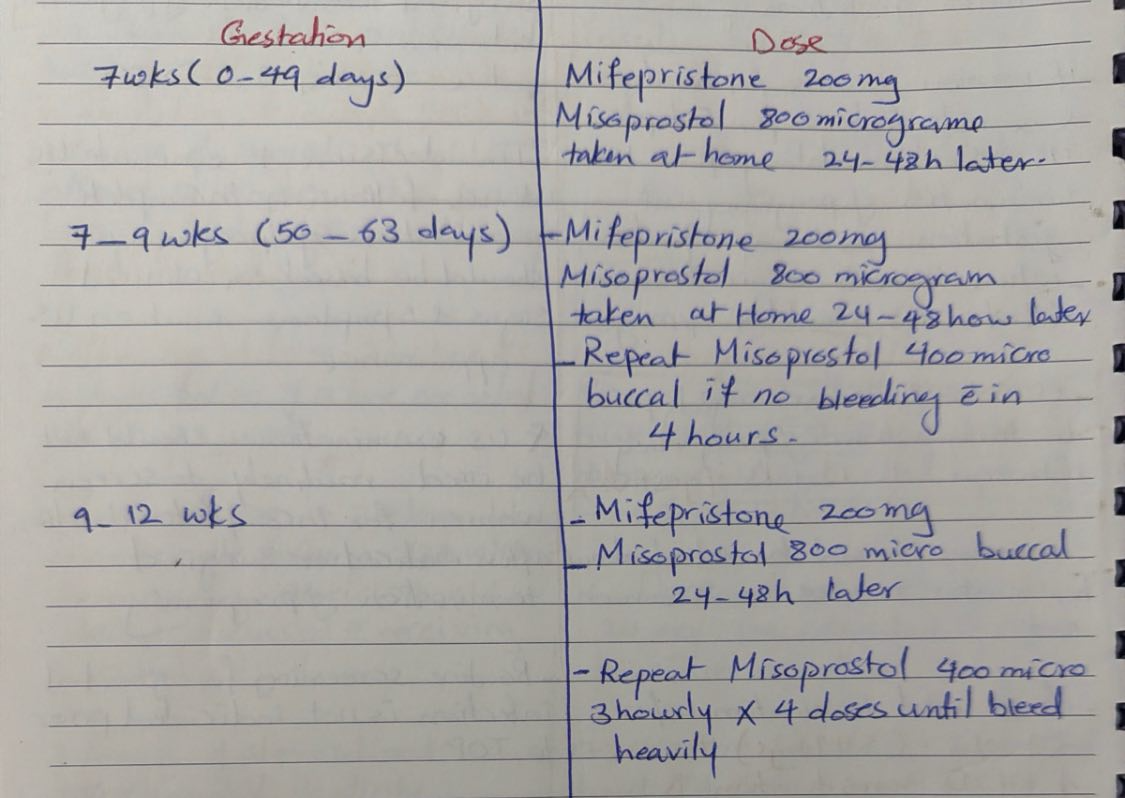 Gestation Dose
7wks (0-49 days) Mifepristone 200mg
Misoprostol 800 micrograme
taken at home 24-48h later.
7-9wks (50-63 days) - Mifepristone 200mg
Misoprostol 800 microgram
taken at Home 24-48 hour later
- Repeat Misoprostol 400 micro
buccal if no bleeding c̄ in
4 hours.
9-12 wks - Mifepristone 200mg
- Misoprostol 800 micro buccal
24-48h later
- Repeat Misoprostol 400 micro
3hourly x 4 doses until bleed
heavily